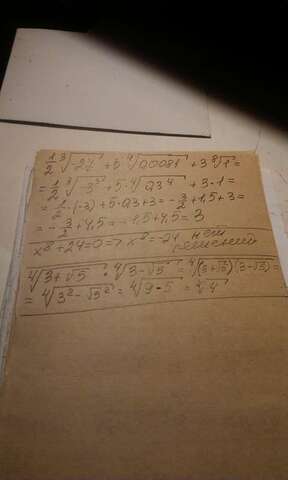 1/2 ∛-27 + 5 ∜0,0081 + 3 ⁸√1 =
= 1/2 ∛-3³ + 5·∜0,3⁴ + 3·1 =
= 1/2·(-3) + 5·0,3 + 3 = -3/2 + 1,5 + 3 =
= -3/2 + 4,5 = -1,5 + 4,5 = 3
x⁸ + 24 = 0 => x⁸ = -24 нет
решений
∜3+√5 · ∜3-√5 = ∜(3+√5)(3-√5) =
= ∜3² - √5² = ∜9-5 = ∜4